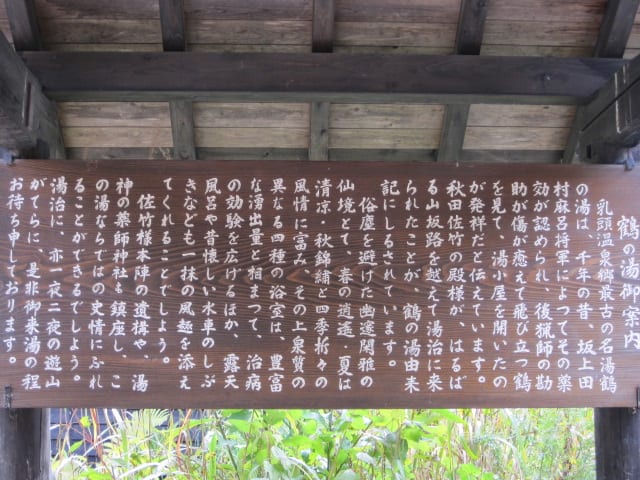 鶴の湯御案内
乳頭温泉郷最古の名湯鶴
の湯は、千年の昔、坂上田
村麻呂将軍によってその薬
効が認められ、後猟師の勘
助が傷が癒えて飛び立つ鶴
を見て、湯小屋を開いたの
が発祥だと伝えています。
秋田佐竹の殿様が、はるば
る山坂路を越えて湯治に来
られたことが、鶴の湯由来
記にしるされています。
俗塵を避けた幽邃閑雅の
仙境とて、春の逍遥、夏は
清凉・秋錦繡と四季折々の
風情に富み、その上泉質の
異なる四種の浴室は、豊富
な湧出量と相まつて、治病
の効験を広げるほか、露天
風呂や昔懐しい水車のしぶ
きなども一抹の風趣を添え
てくれることでしょう。
佐竹様本陣の遺構や、湯
神の薬師神社も鎮座し、こ
の湯ならではの史情にふれ
ることができるでしょう。
湯治に、亦一夜二夜の遊山
がてらに、是非御来湯の程
お待ち申しております。